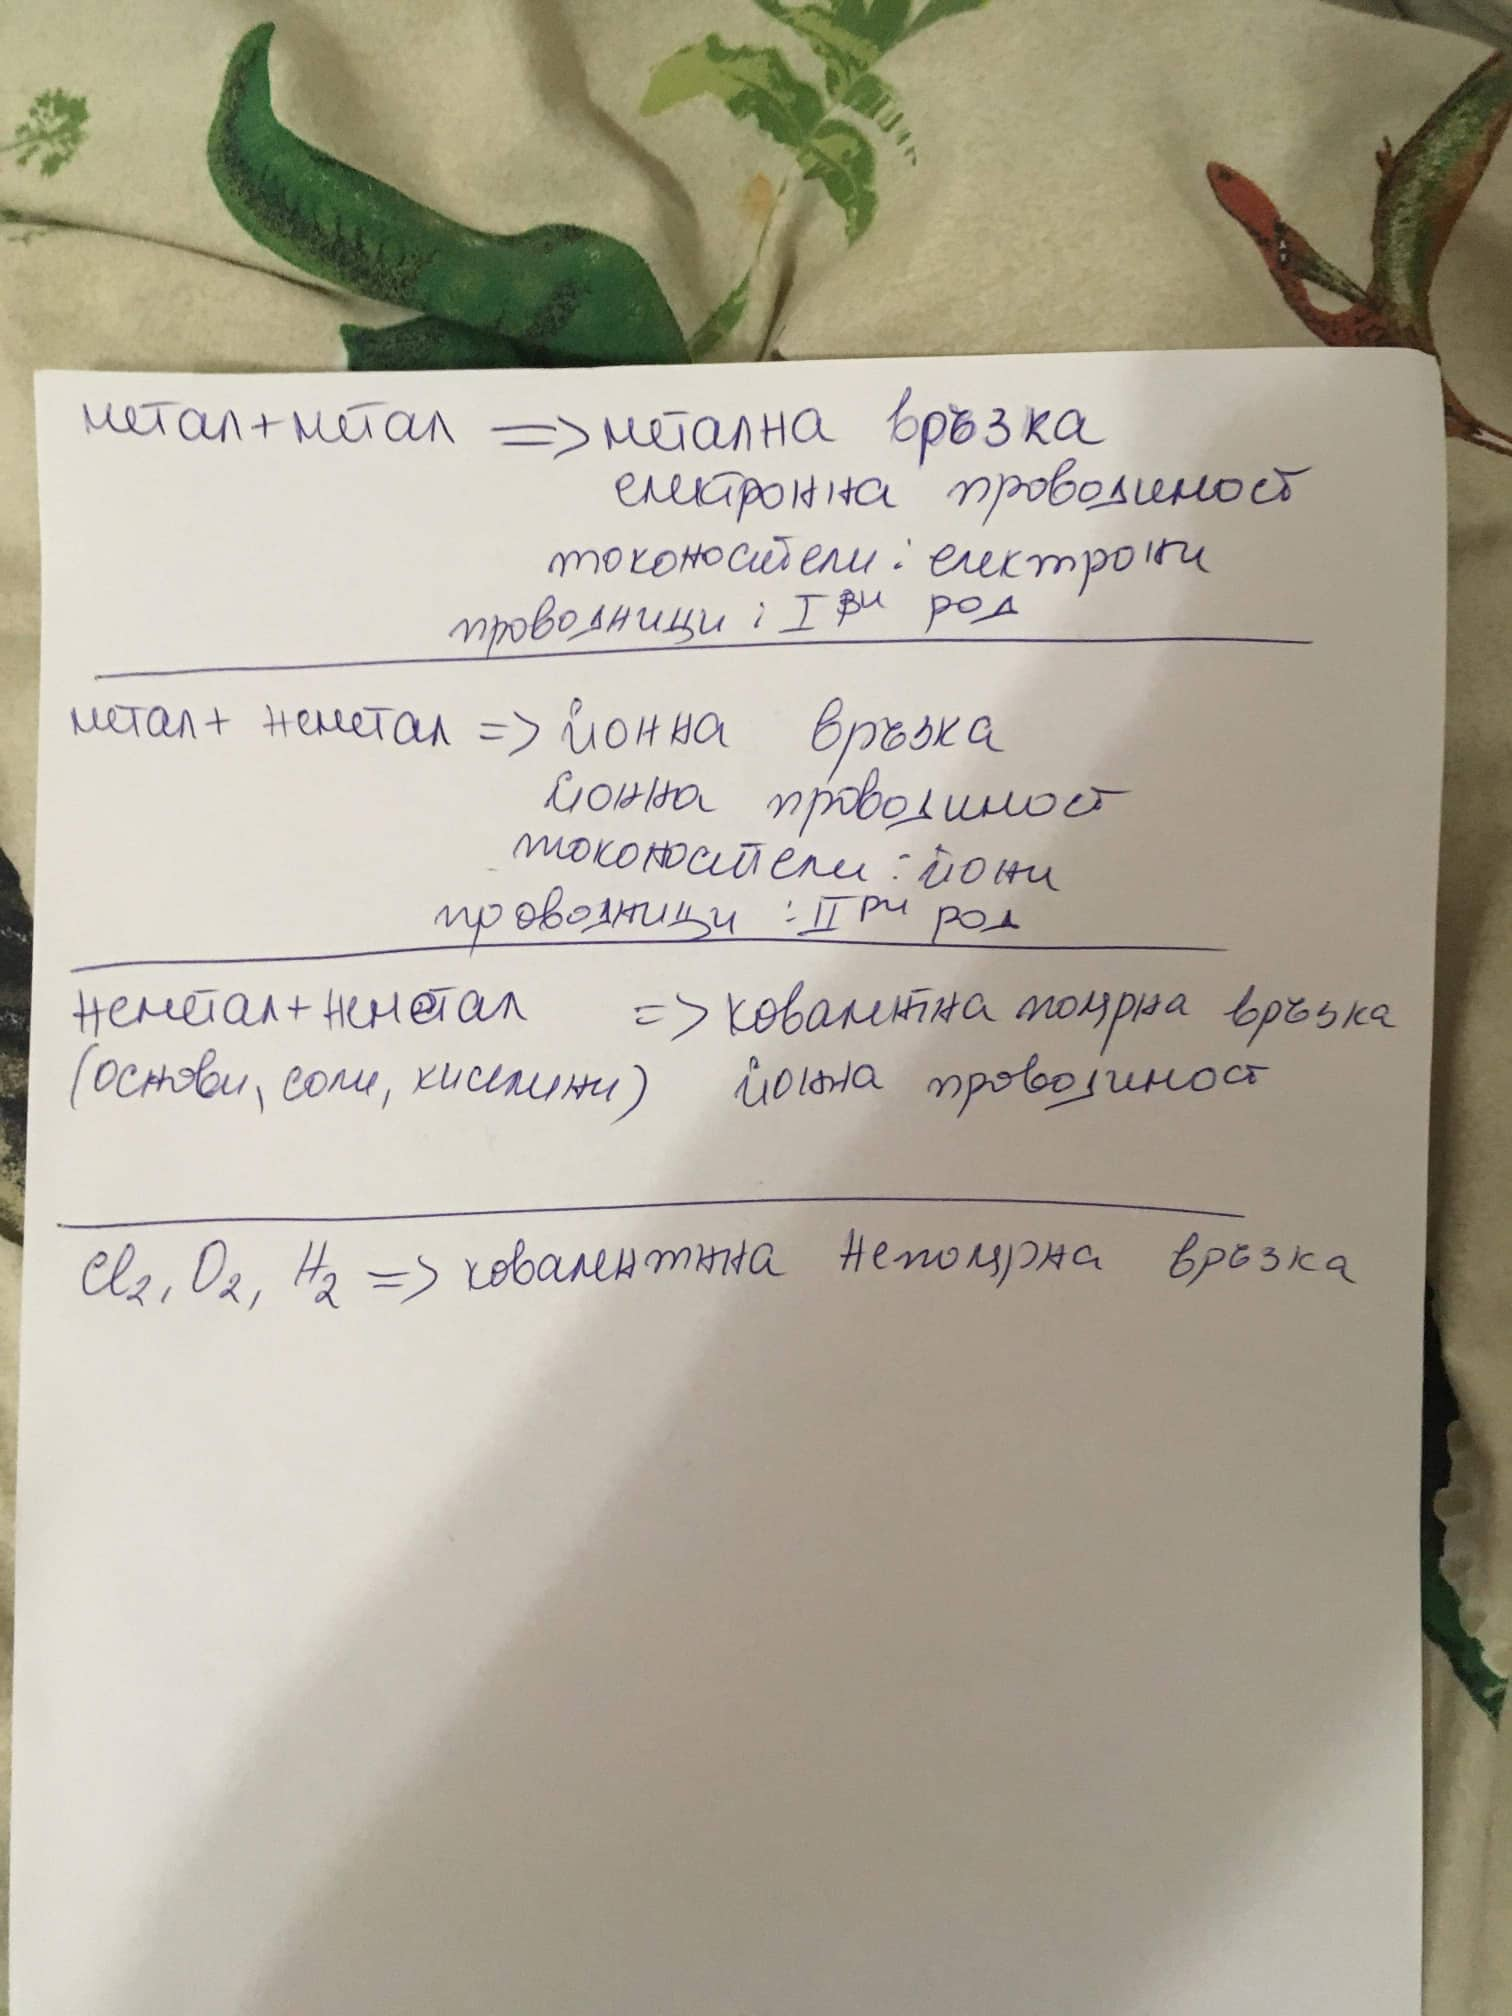 метал+метал => метална връзка
електронна проводимост
токоносители: електрони
проводници: I ви род
метал+ неметал => йонна връзка
йонна проводимост
токоносители: йони
проводници: II ри род
неметал+неметал => ковалентна полярна връзка
(основи, соли, киселини) йонна проводимост
Cl₂, O₂, H₂ => ковалентна неполярна връзка